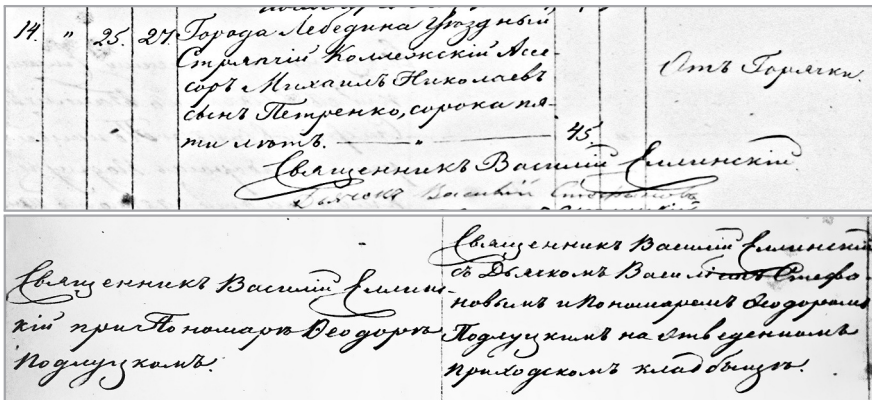 14. " 25. 27. Города Лебедина Уѣздный
Стряпчій Коллежскій Ассе-
соръ Михаилъ Николаевъ
сынъ Петренко, сорока пя-
ти лѣтъ. — " — 45
Отъ Горячки.
Священникъ Василій Еллинскій
Дьячокъ Василій Стефановъ
Священникъ Василій Еллинс-
кій при Пономарѣ Ѳеодорѣ
Подлуцкомъ.
Священникъ Василій Еллинскій
съ Дьячкомъ Василіемъ Стефа-
новымъ и Пономаремъ Ѳеодоромъ
Подлуцкимъ на отведенномъ
приходскомъ кладбищѣ.